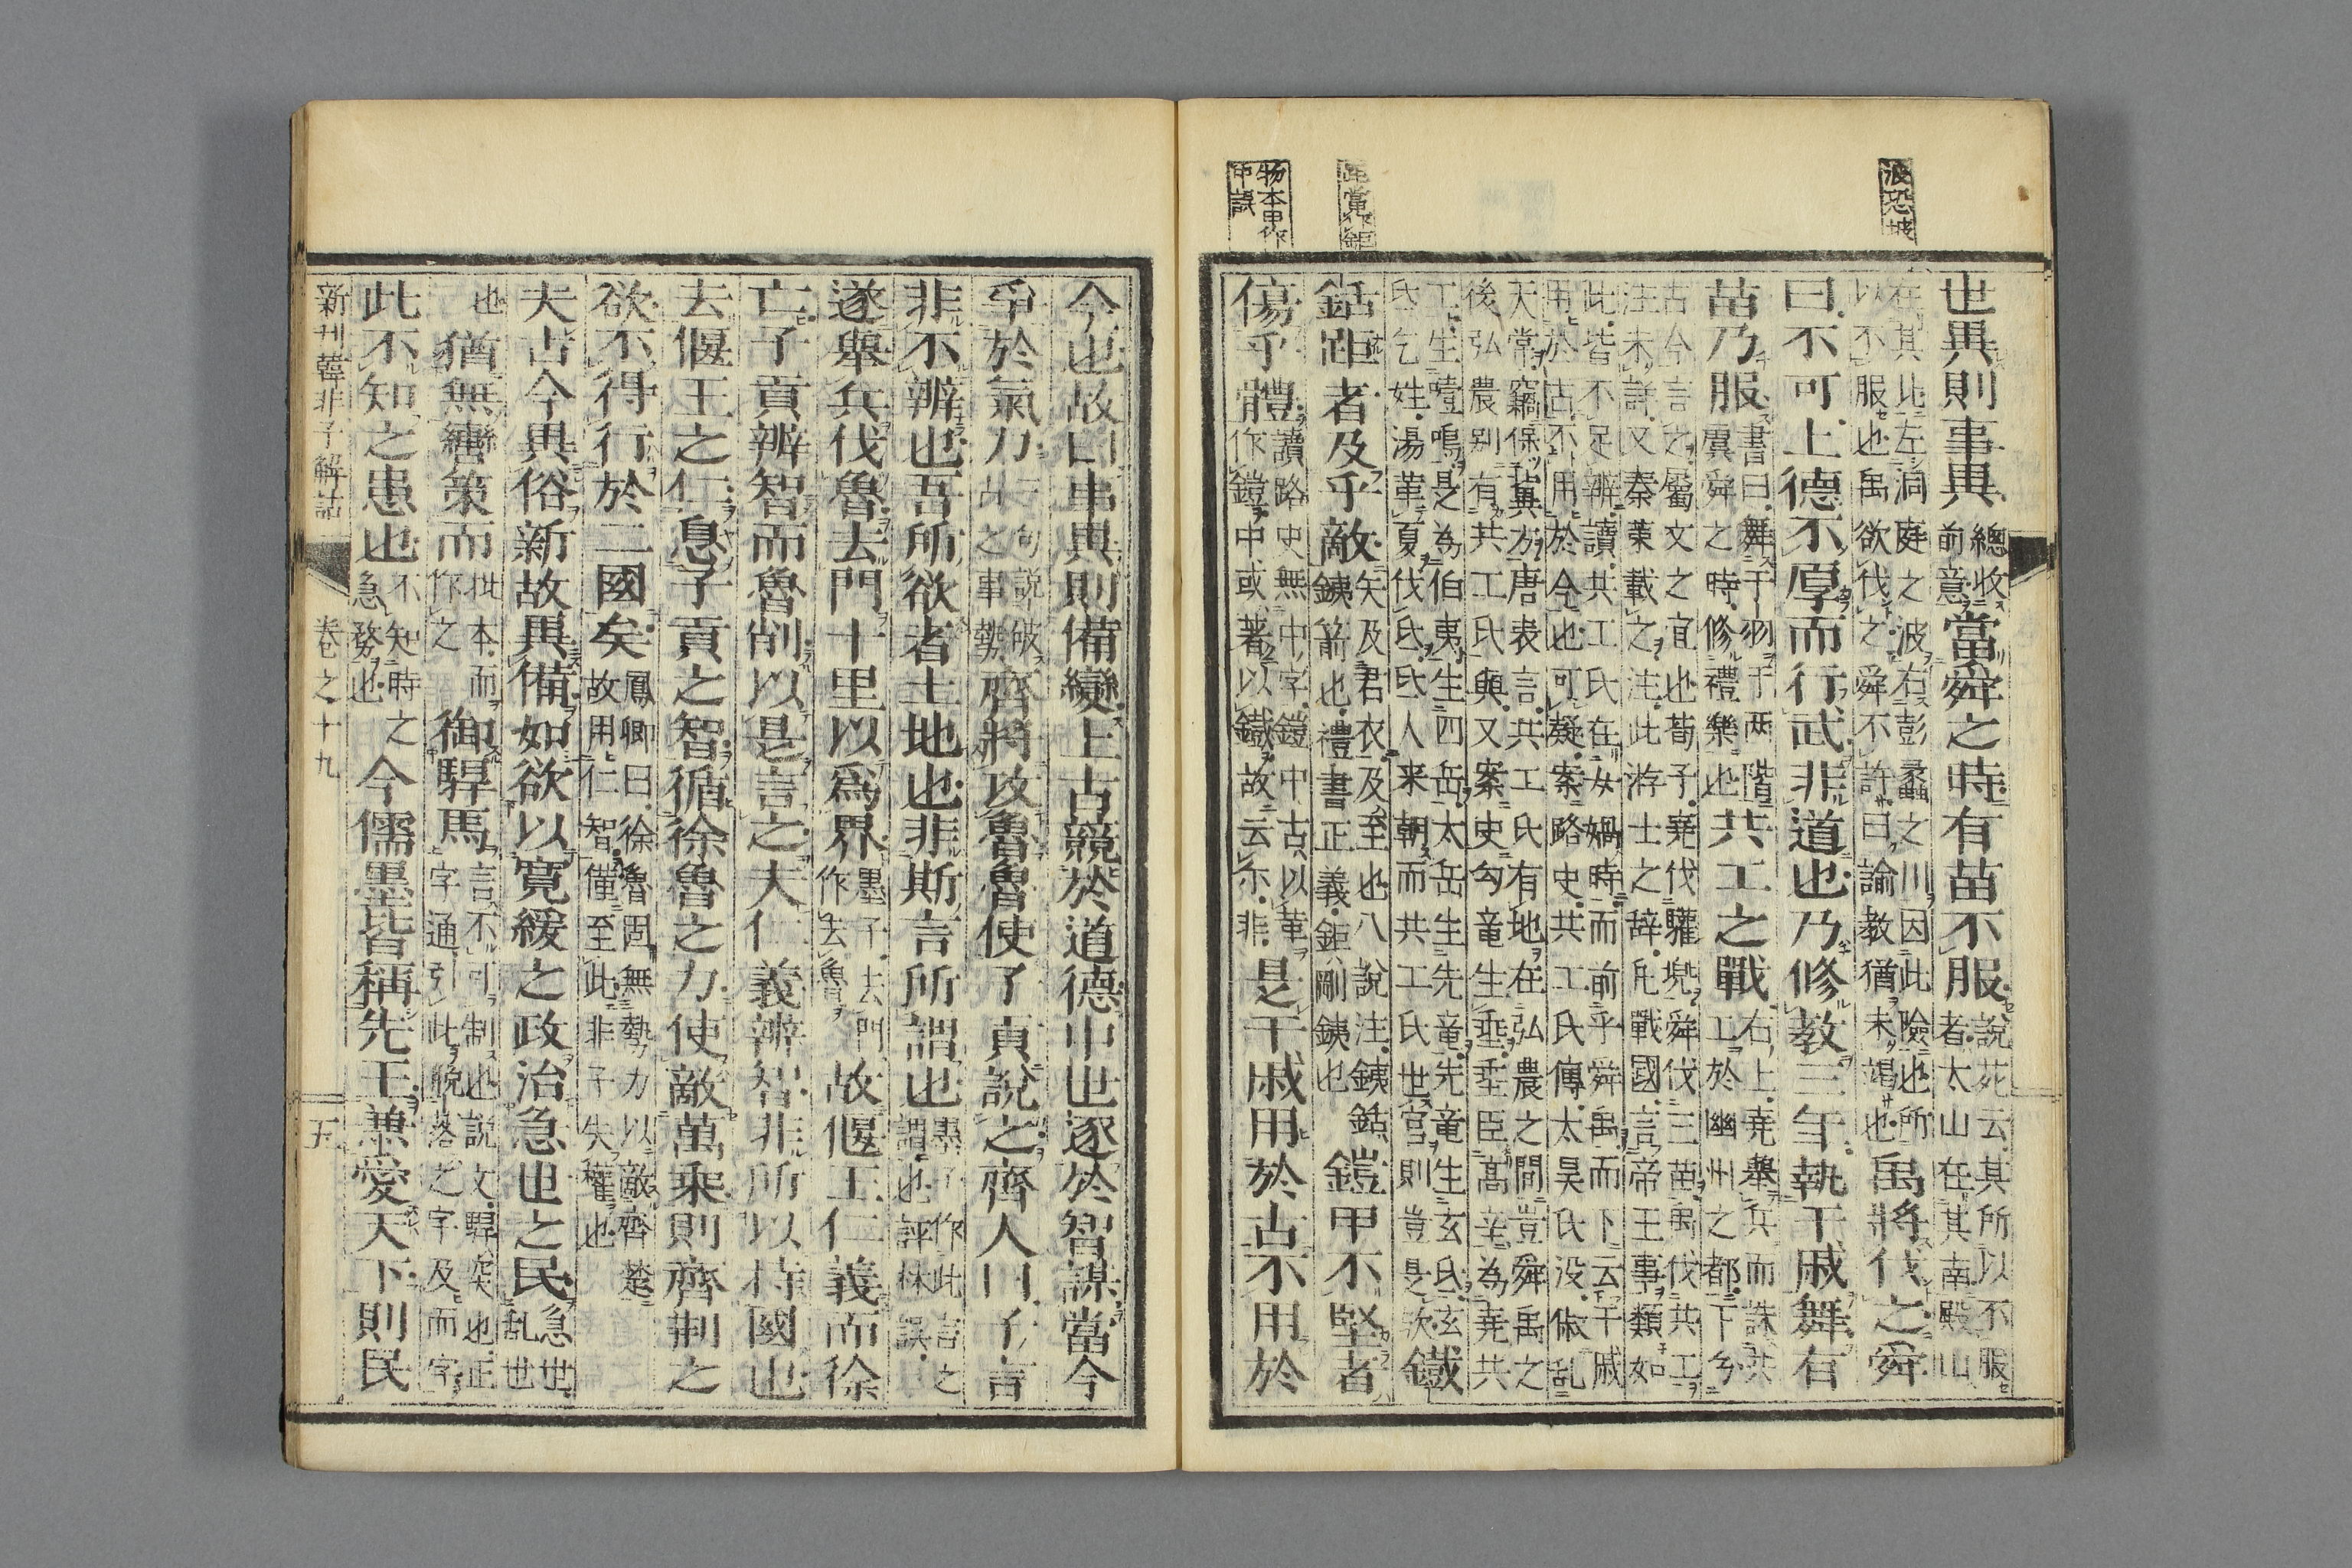 波恐坡
距當作鉅
物本甲作
甲誤
世異則事異總收前意當舜之時有苗不服説苑云其所以不服者太山在其南殿山
在其北左洞庭之波右彭蠡之川因此險也所以不服也禹欲伐之舜不許曰諭教猶未竭也禹將伐之舜
曰不可上德不厚而行武非道也乃修教三年執干戚舞有
苗乃服書曰舞干羽于兩階虞舜之時修禮樂也共工之戰右上堯舉兵而誅共工於幽州之都下
古今言之屬文之宜也荀子堯伐驩兜舜伐三苗禹伐共工注未詳又秦策載之注此游士之辞凡戰國言帝王事類如
此皆不足辨讀共工氏在女媧時而前乎舜禹而下云干戚用於古不用於今也可疑案路史共工氏傳太昊氏没俶乱
天常竊保冀方唐表言共工氏有地在弘農之間豈舜禹之後弘農別有共工氏與又案史勾竜生垂垂臣高辛為堯共
工生噎鳴是為伯夷生四岳太岳生先竜先竜生玄氐玄氐乞姓湯革夏伐氐氐人来朝而共工氏世官則豈是欤鐵
銛距者及乎敵矢及君衣及至也八説注銕銛銕箭也禮書正義鉅剛銕也鎧甲不堅者
傷乎體讀路史無中字鎧中古以革作鎧中或著以鐵故云尓非是干戚用於古不用於
今也故曰事異則備變上古競於道德中世逐於智謀當今
爭於氣力一句説破此之事勢齊將攻魯魯使子貢説之齊人曰子言
非不辨也吾所欲者土地也非斯言所謂也愚子作此言之謂也評林誤
遂舉兵伐魯去門十里以爲界墨子去門作去魯故偃王仁義而徐
亡子貢辨智而魯削以是言之夫仁義辨智非所以持國也
去偃王之仁息子貢之智循徐魯之力使敵萬乘則齊荆之
欲不得行於二國矣鳳卿曰徐魯固無勢力以敵齊楚故用仁智僅至此非子失權也
夫古今異俗新故異備如欲以寛緩之政治急世之民急世乱世
也猶無轡策而㧗本而作之御駻馬言不可制也説文駻突也正字通引此脱落之字及而字
此不知之患也不知時之急務也今儒墨皆稱先王兼愛天下則民
新刊韓非子解詁 卷之十九 五